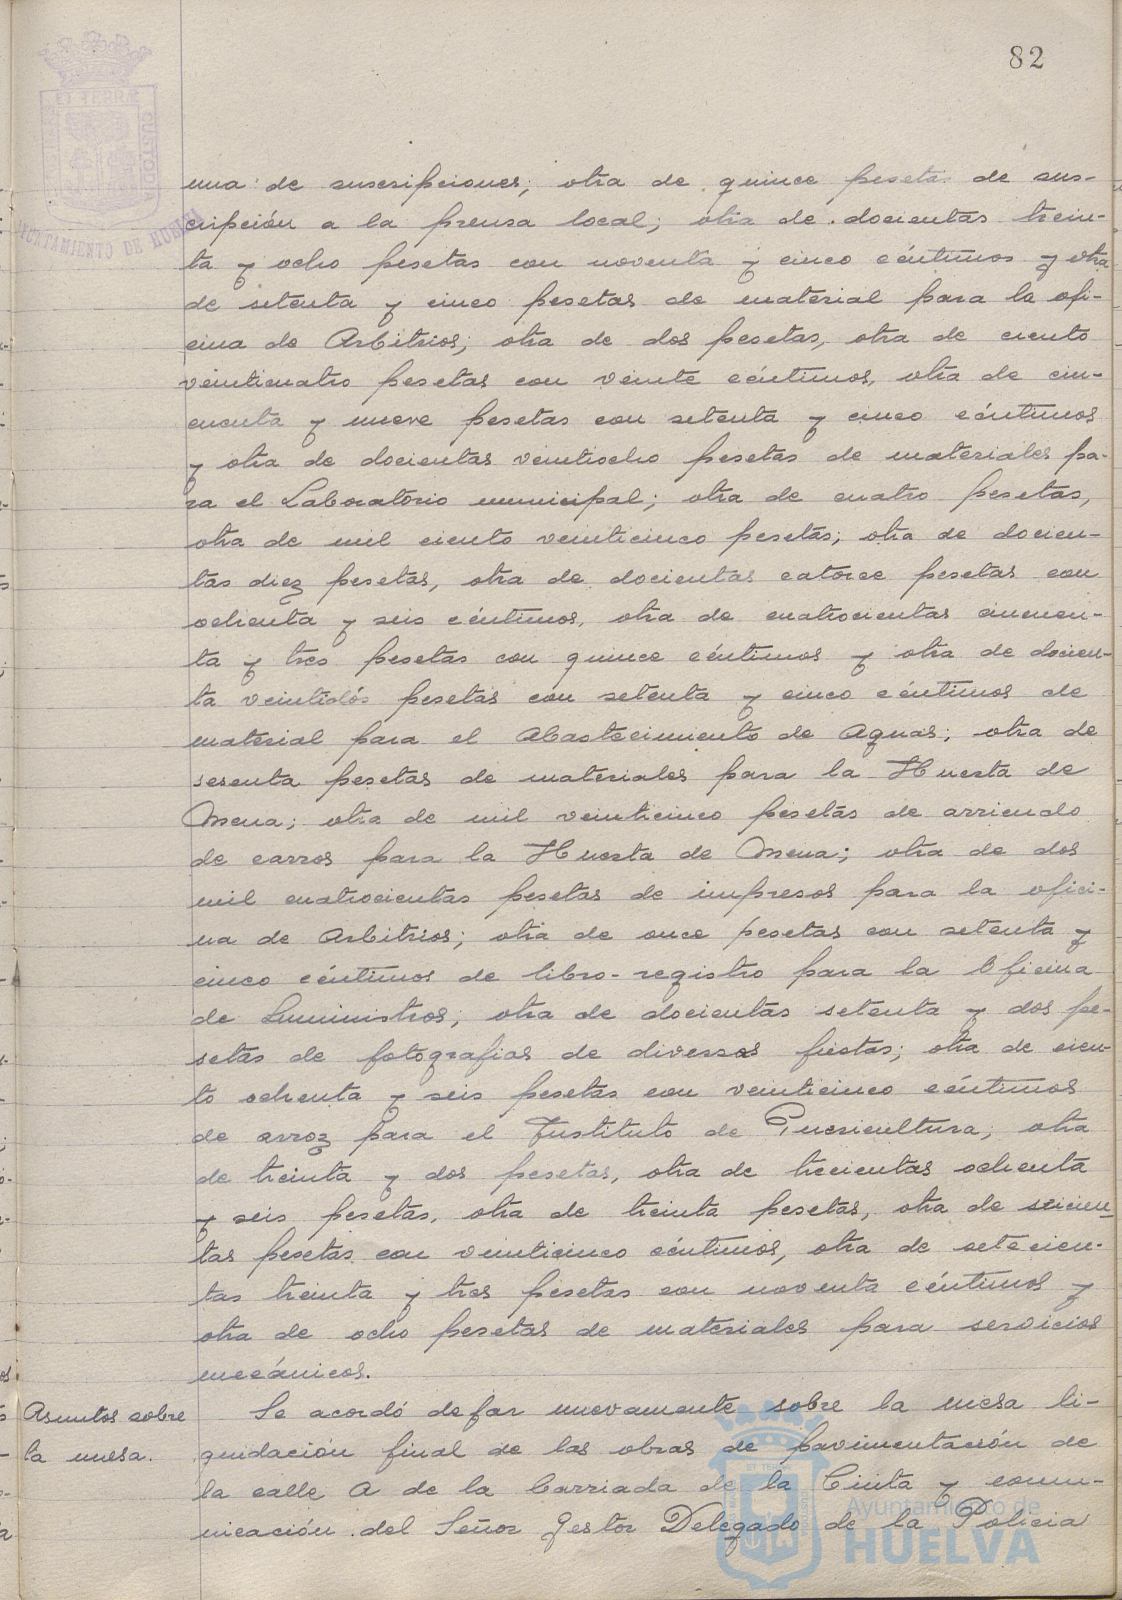 82
ET TERRÆ
CUSTODIA
AYUNTAMIENTO DE HUELVA
una de suscripciones; otra de quince pesetas de sus-
cripción a la prensa local; otra de docientas trein-
ta y ocho pesetas con noventa y cinco céntimos y otra
de setenta y cinco pesetas de material para la ofi-
cina de Arbitrios; otra de dos pesetas, otra de ciento
veinticuatro pesetas con veinte céntimos, otra de cin-
cuenta y nueve pesetas con setenta y cinco céntimos
y otra de docientas veintiocho pesetas de materiales pa-
ra el Laboratorio municipal; otra de cuatro pesetas,
otra de mil ciento veinticinco pesetas; otra de docien-
tas diez pesetas, otra de docientas catorce pesetas con
ochenta y seis céntimos, otra de cuatrocientas cincuen-
ta y tres pesetas con quince céntimos y otra de docien-
ta veintidós pesetas con setenta y cinco céntimos de
material para el Abastecimiento de Aguas; otra de
sesenta pesetas de materiales para la Huerta de
Mena; otra de mil veinticinco pesetas de arriendo
de carros para la Huerta de Mena; otra de dos
mil cuatrocientas pesetas de impresos para la ofici-
na de Arbitrios; otra de once pesetas con setenta y
cinco céntimos de libro-registro para la Oficina
de Suministros; otra de docientas setenta y dos pe-
setas de fotografias de diversas fiestas; otra de cien-
to ochenta y seis pesetas con veinticinco céntimos
de arroz para el Instituto de Puericultura; otra
de treinta y dos pesetas, otra de trecientas ochenta
y seis pesetas, otra de treinta pesetas, otra de seicien-
tas pesetas con veinticinco céntimos, otra de setecien-
tas treinta y tres pesetas con noventa céntimos y
otra de ocho pesetas de materiales para servicios
mecánicos.
Asuntos sobre
la mesa.
Se acordó dejar nuevamente sobre la mesa li-
quidación final de las obras de pavimentación de
la calle A de la barriada de la Cinta y comu-
nicación del Señor Gestor Delegado de la Policia
Ayuntamiento de
HUELVA